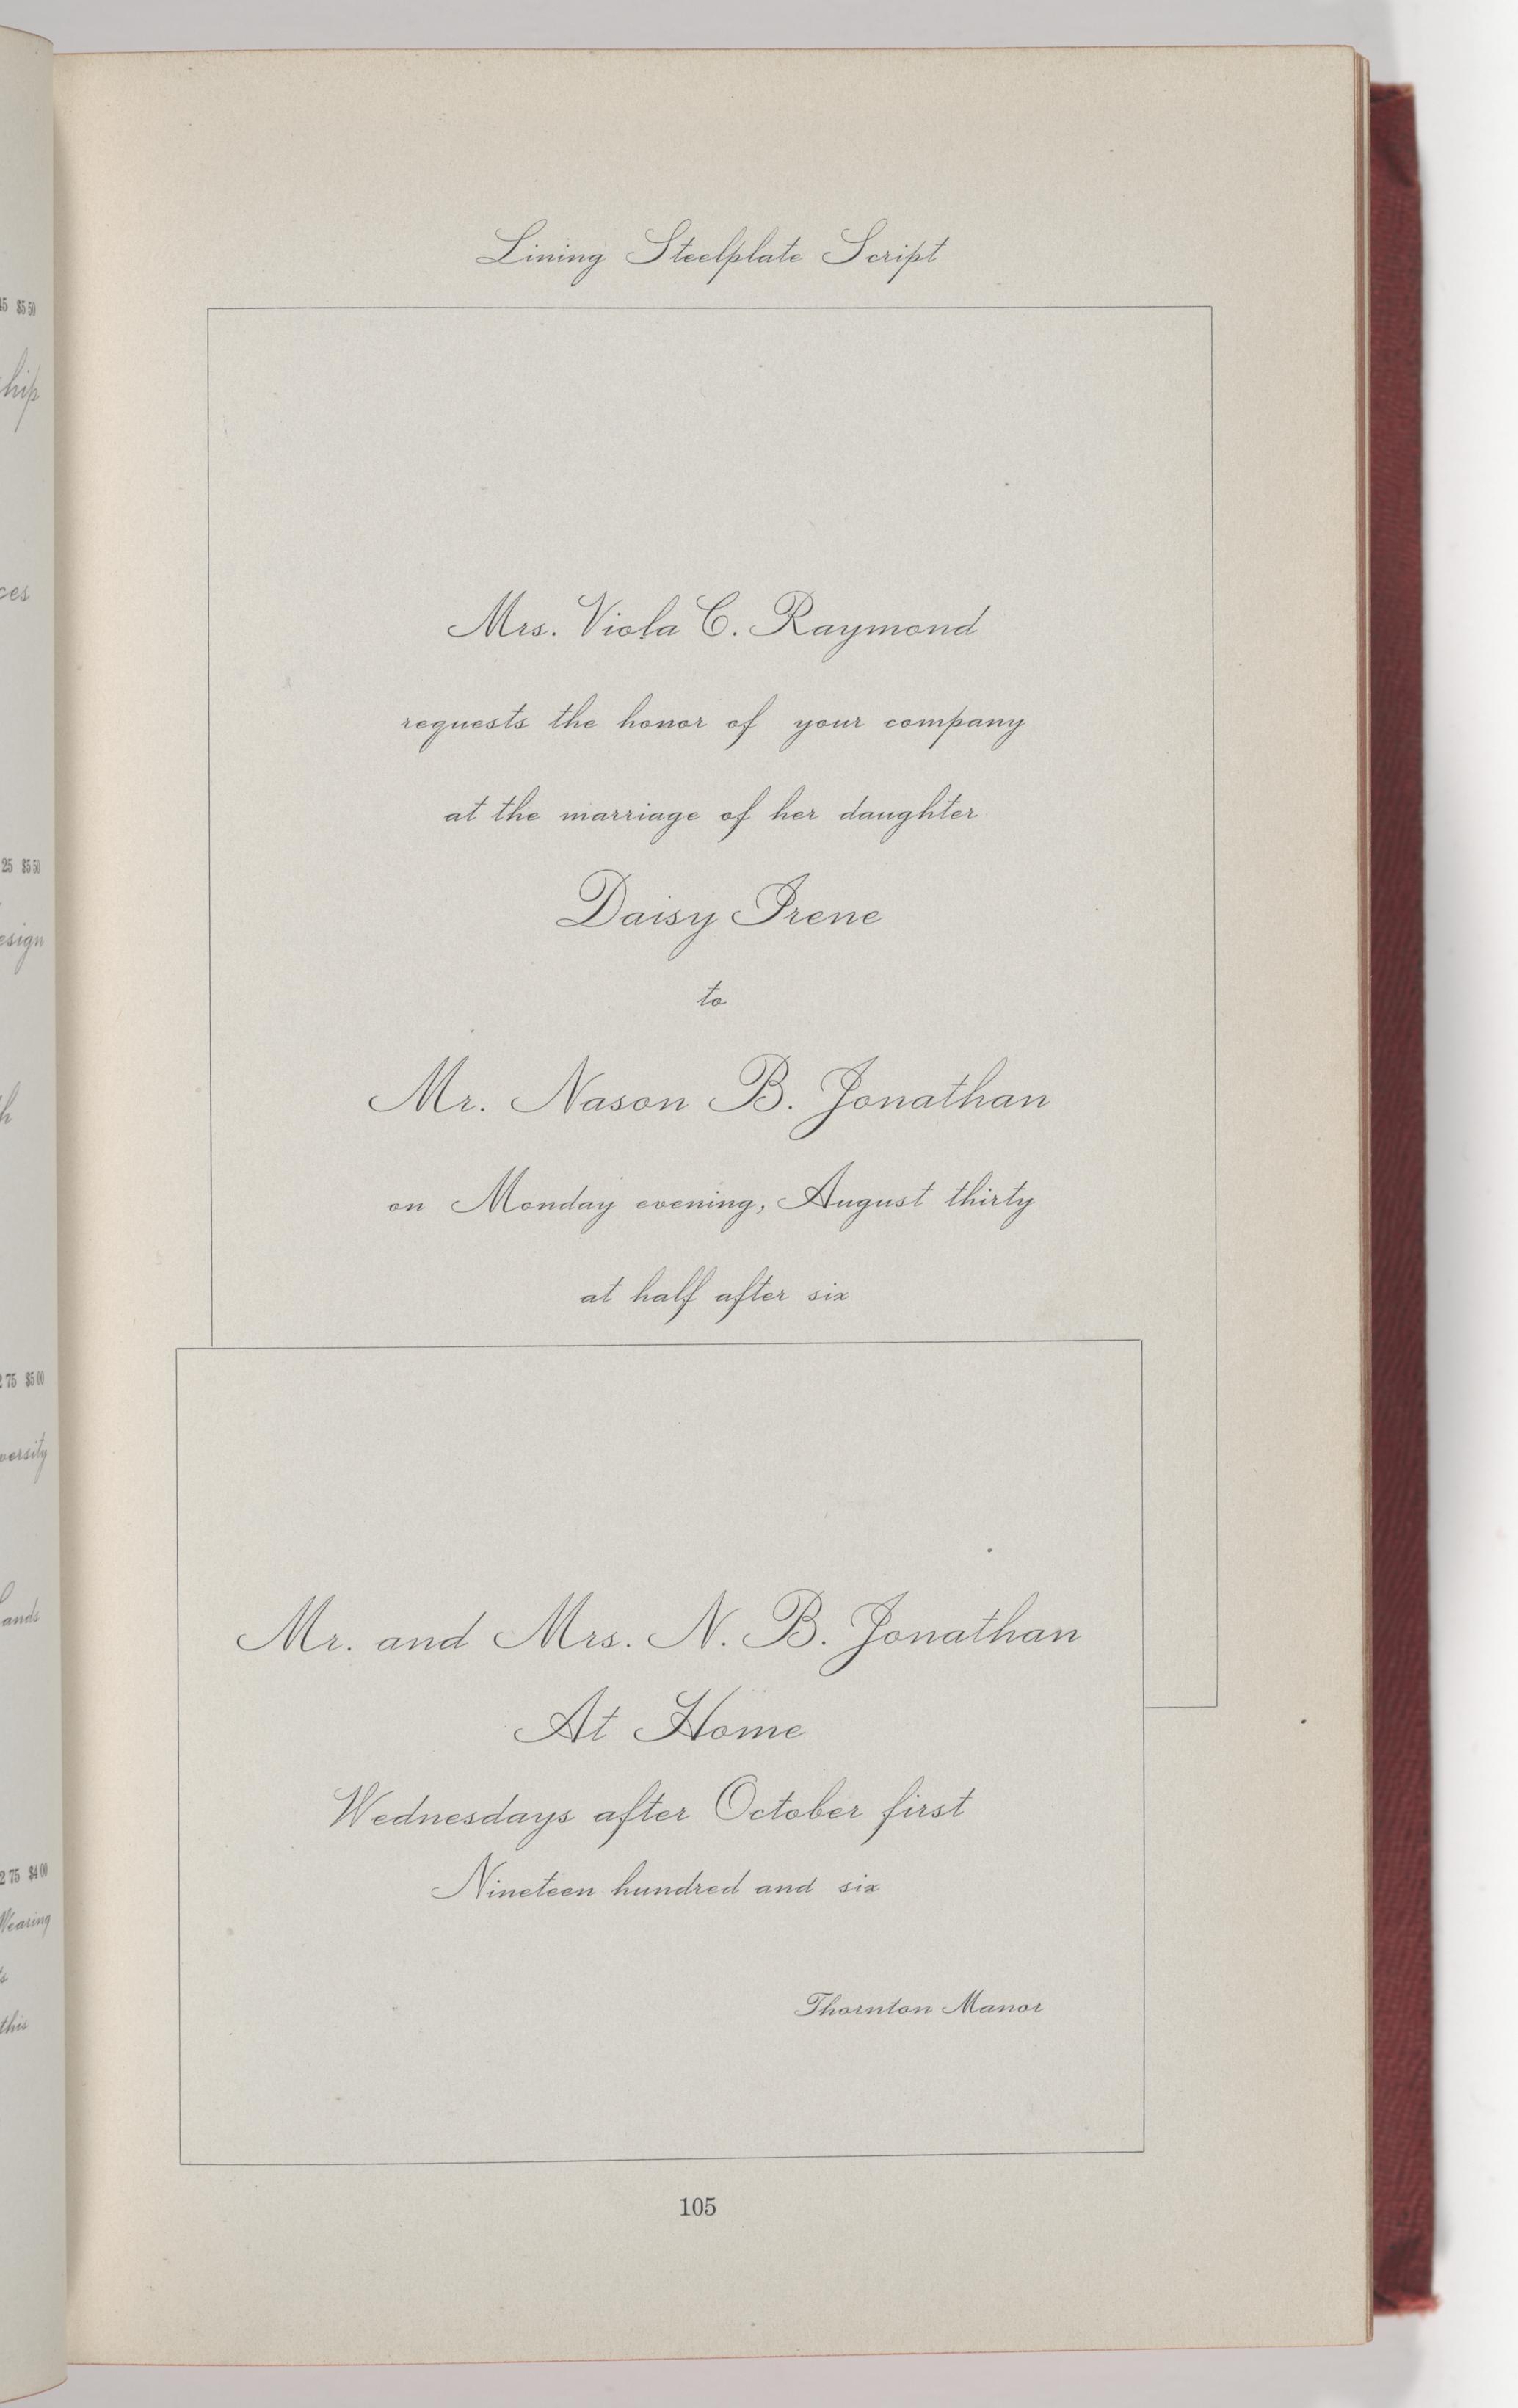 Lining Steelplate Script
Mrs. Viola C. Raymond
requests the honor of your company
at the marriage of her daughter
Daisy Irene
to
Mr. Nason B. Jonathan
on Monday evening, August thirty
at half after six
Mr. and Mrs. N. B. Jonathan
At Home
Wednesdays after October first
Nineteen hundred and six
Thornton Manor
105
$5 50
25 $5 50
75 $5 00
75 $4 00
Wearing
this